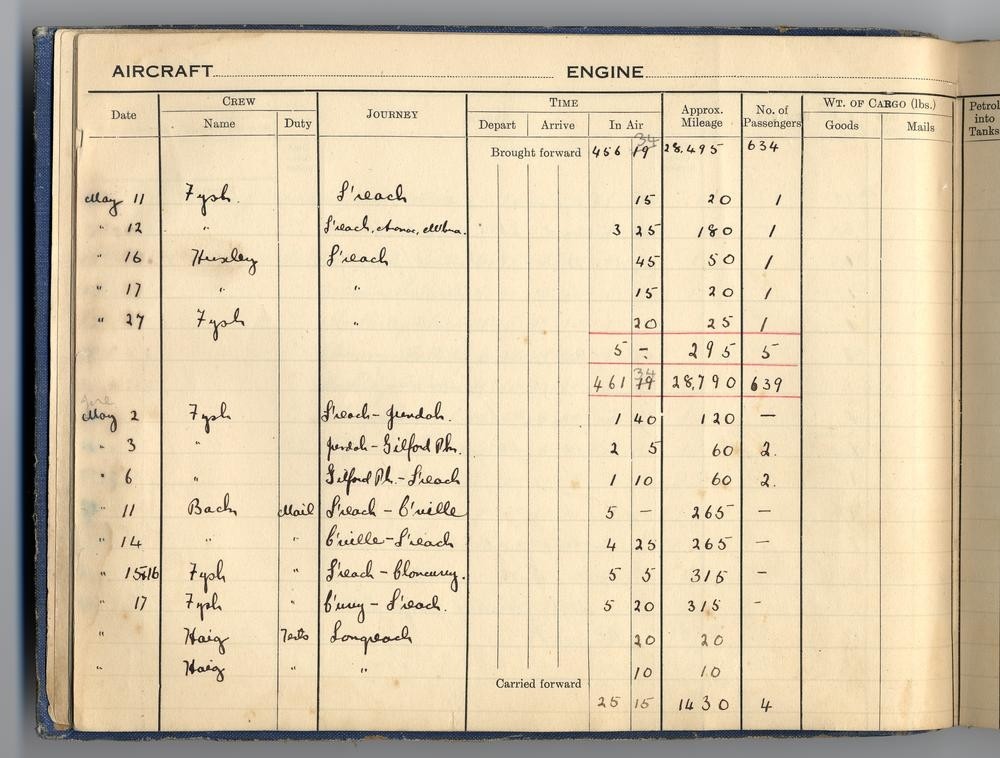 AIRCRAFT ENGINE
Date CREW JOURNEY TIME Approx. Mileage No. of Passengers WT. OF CARGO (lbs.) Petrol into Tanks
Name Duty Depart Arrive In Air Goods Mails
Brought forward 456 19 34 28,495 634
May 11 Fysh. L'reach 15 20 1
" 12 " L'reach, 3 25 180 1
" 16 Huxley L'reach 45 50 1
" 17 " " 15 20 1
" 27 Fysh " 20 25 1
5 - 295 5
461 19 34 28,790 639
June
May 2 Fysh L'reach - Jundah. 1 40 120 —
" 3 " Jundah - Gilford Pk. 2 5 60 2.
" 6 " Gilford Pk. - L'reach 1 10 60 2.
" 11 Back Mail L'reach - C'ville 5 - 265 —
" 14 " " C'ville - L'reach 4 25 265 —
" 15&16 Fysh " L'reach - Cloncurry. 5 5 315 -
" 17 Fysh " C'urry - L'reach. 5 20 315 -
" Haig Tests Longreach 20 20
" Haig " " 10 10
Carried forward
25 15 1430 4